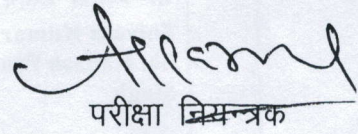 परीक्षा नियन्त्रक